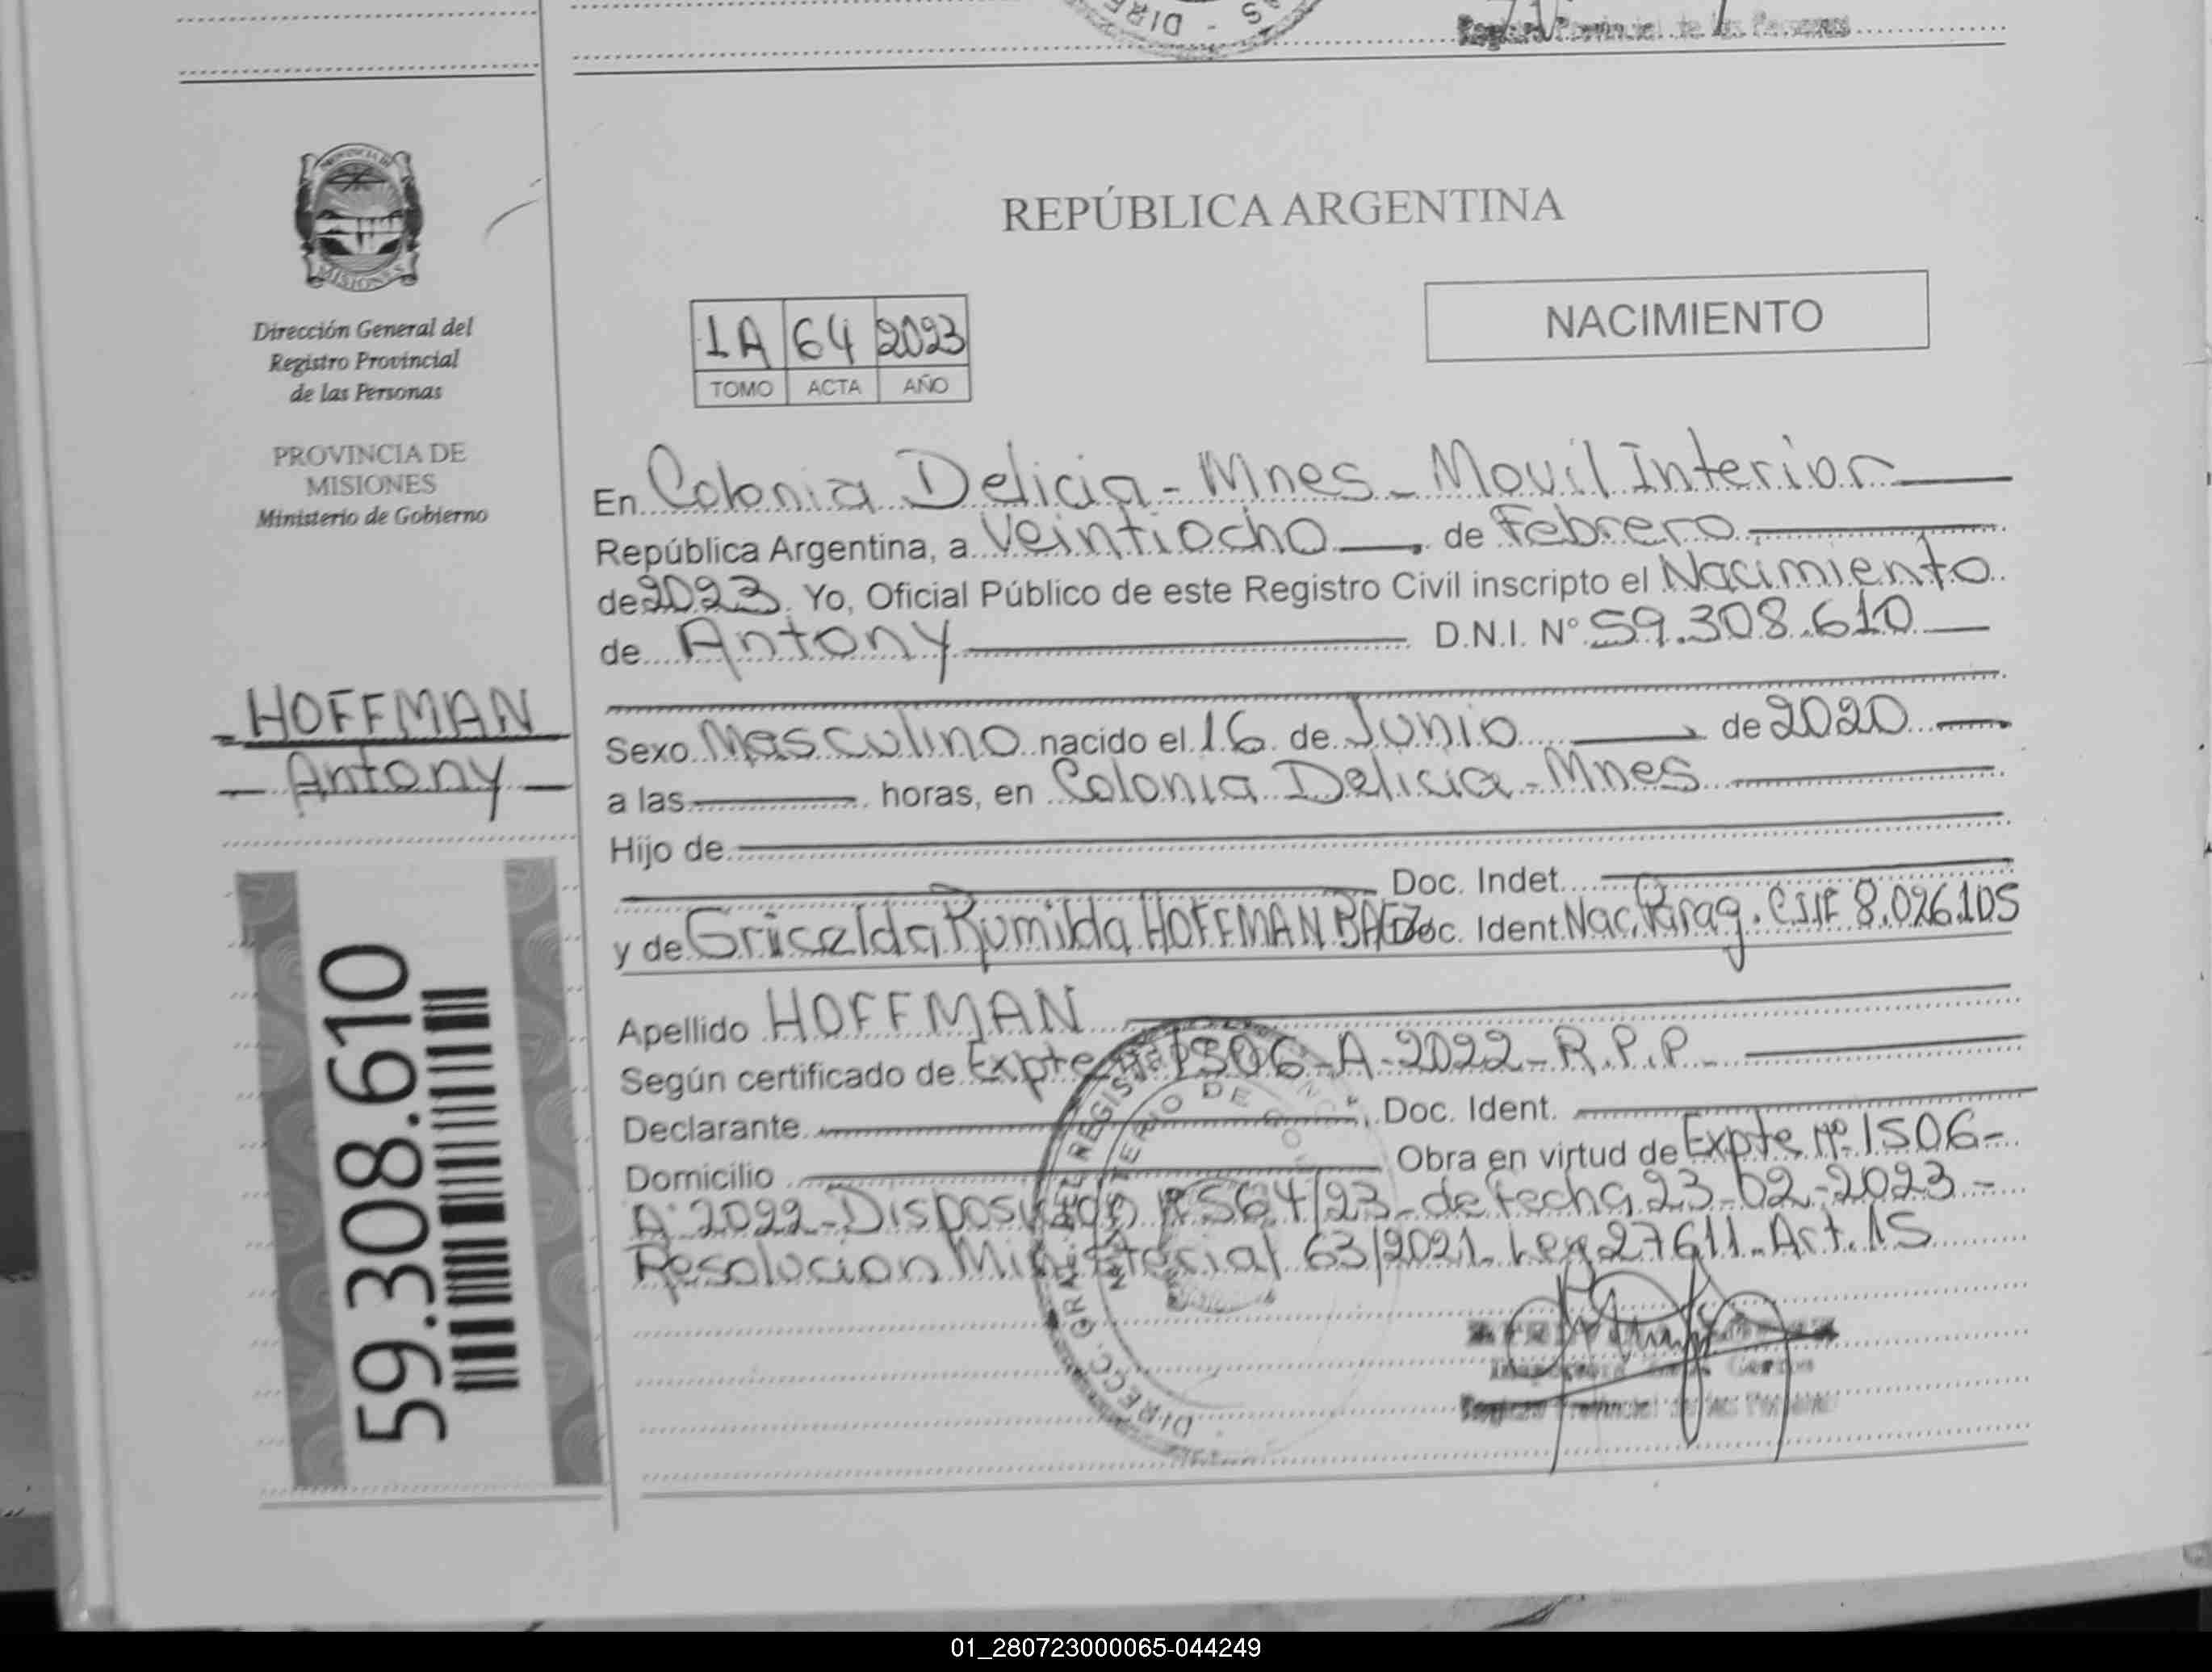 DIRE
Registro Provincial de las Personas
PROVINCIA DE
MISIONES
Dirección General del
Registro Provincial
de las Personas
PROVINCIA DE
MISIONES
Ministerio de Gobierno
HOFFMAN
Antony
59.308.610
REPÚBLICA ARGENTINA
NACIMIENTO
1A 64 2023
TOMO ACTA AÑO
En Colonia Delicia - Mnes - Movil Interior
República Argentina, a Veintiocho de Febrero
de 2023. Yo, Oficial Público de este Registro Civil inscripto el Nacimiento
de Antony D.N.I. N° 59.308.610
Sexo Masculino nacido el 16 de Junio de 2020
a las horas, en Colonia Delicia - Mnes
Hijo de
Doc. Indet.
y de Gricelda Rumilda HOFFMAN BAEZ Doc. Ident. Nac. Parag. 8.026.105
Apellido HOFFMAN
Según certificado de Expte 1506-A-2022-R.P.P.
Declarante Doc. Ident.
Domicilio Obra en virtud de Expte Nº 1506-
A-2022-Disposicion 564/23-de fecha 23-02-2023-
Resolucion Ministerial 63/2021-Ley 27611-Art.15
DIRECC. GRAL. DEL REGISTRO
MINISTERIO DE
Registro Provincial de las Personas
01_280723000065-044249